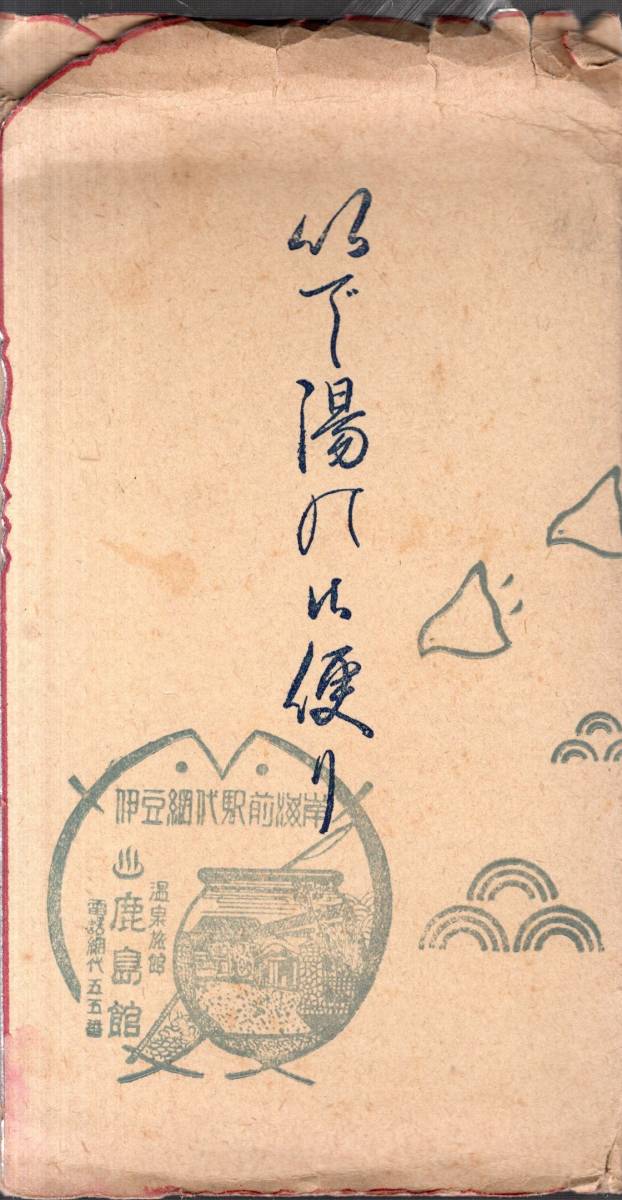 いで湯の便り
伊豆網代駅前海岸
温泉旅館
♨鹿島館
電話網代五五番